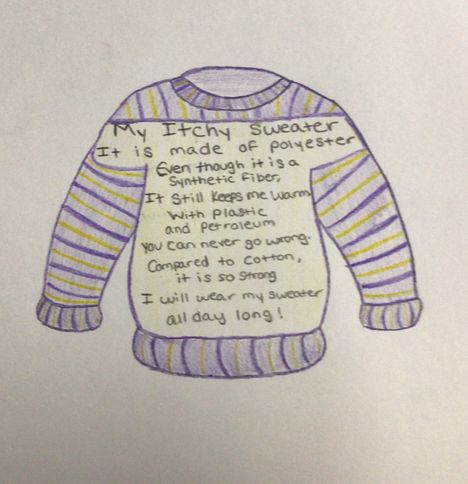 My Itchy Sweater
It is made of polyester
Even though it is a
Synthetic fiber,
It still keeps me warm
With plastic
and Petroleum
you can never go wrong.
Compared to cotton,
it is so strong
I will wear my sweater
all day long!